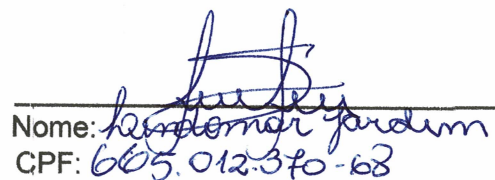 Nome: Lindomar Jardim
CPF: 665.012.370-68